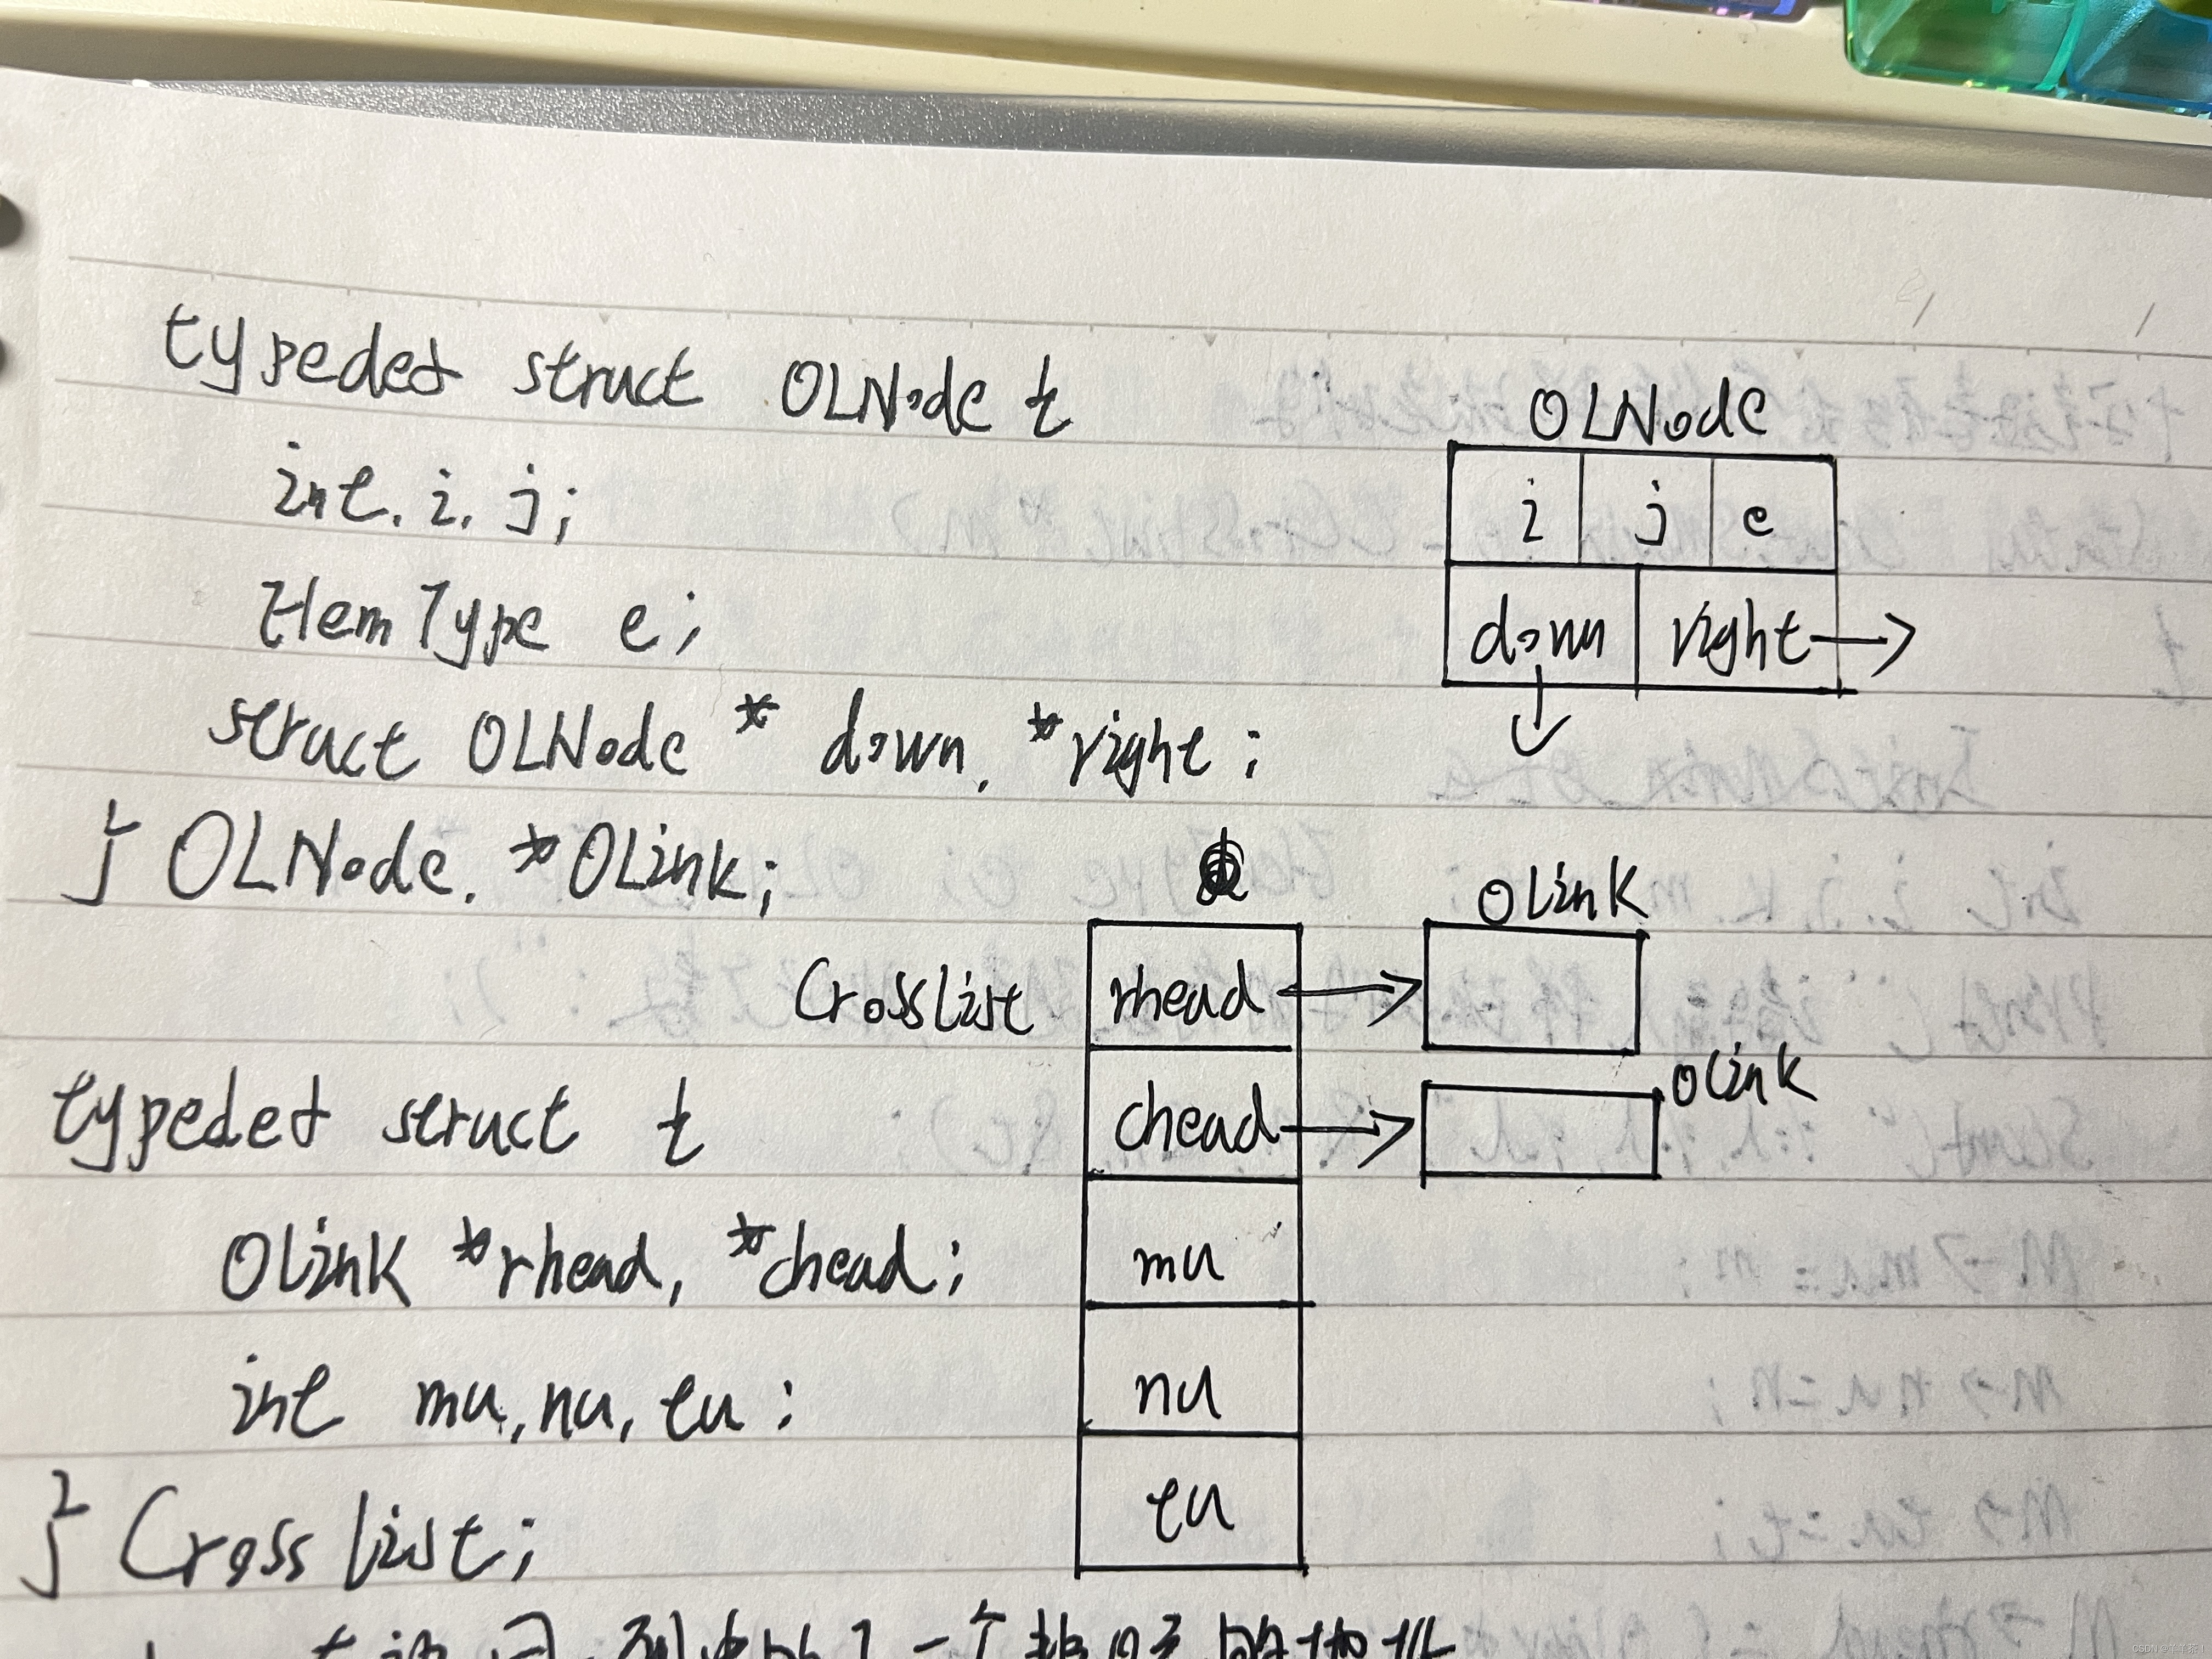 typedef struct OLNode {
int. i. j;
ElemType e;
struct OLNode * down, *right;
} OLNode. *OLink;
typedef struct {
OLink *rhead, *chead;
int mu, nu, tu;
} CrossList;
OLNode
i j e
down right
CrossList
rhead
chead
mu
nu
tu
OLink
OLink
一个